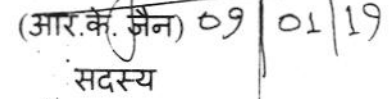 (आर.के. जैन) 09/01/19
सदस्य